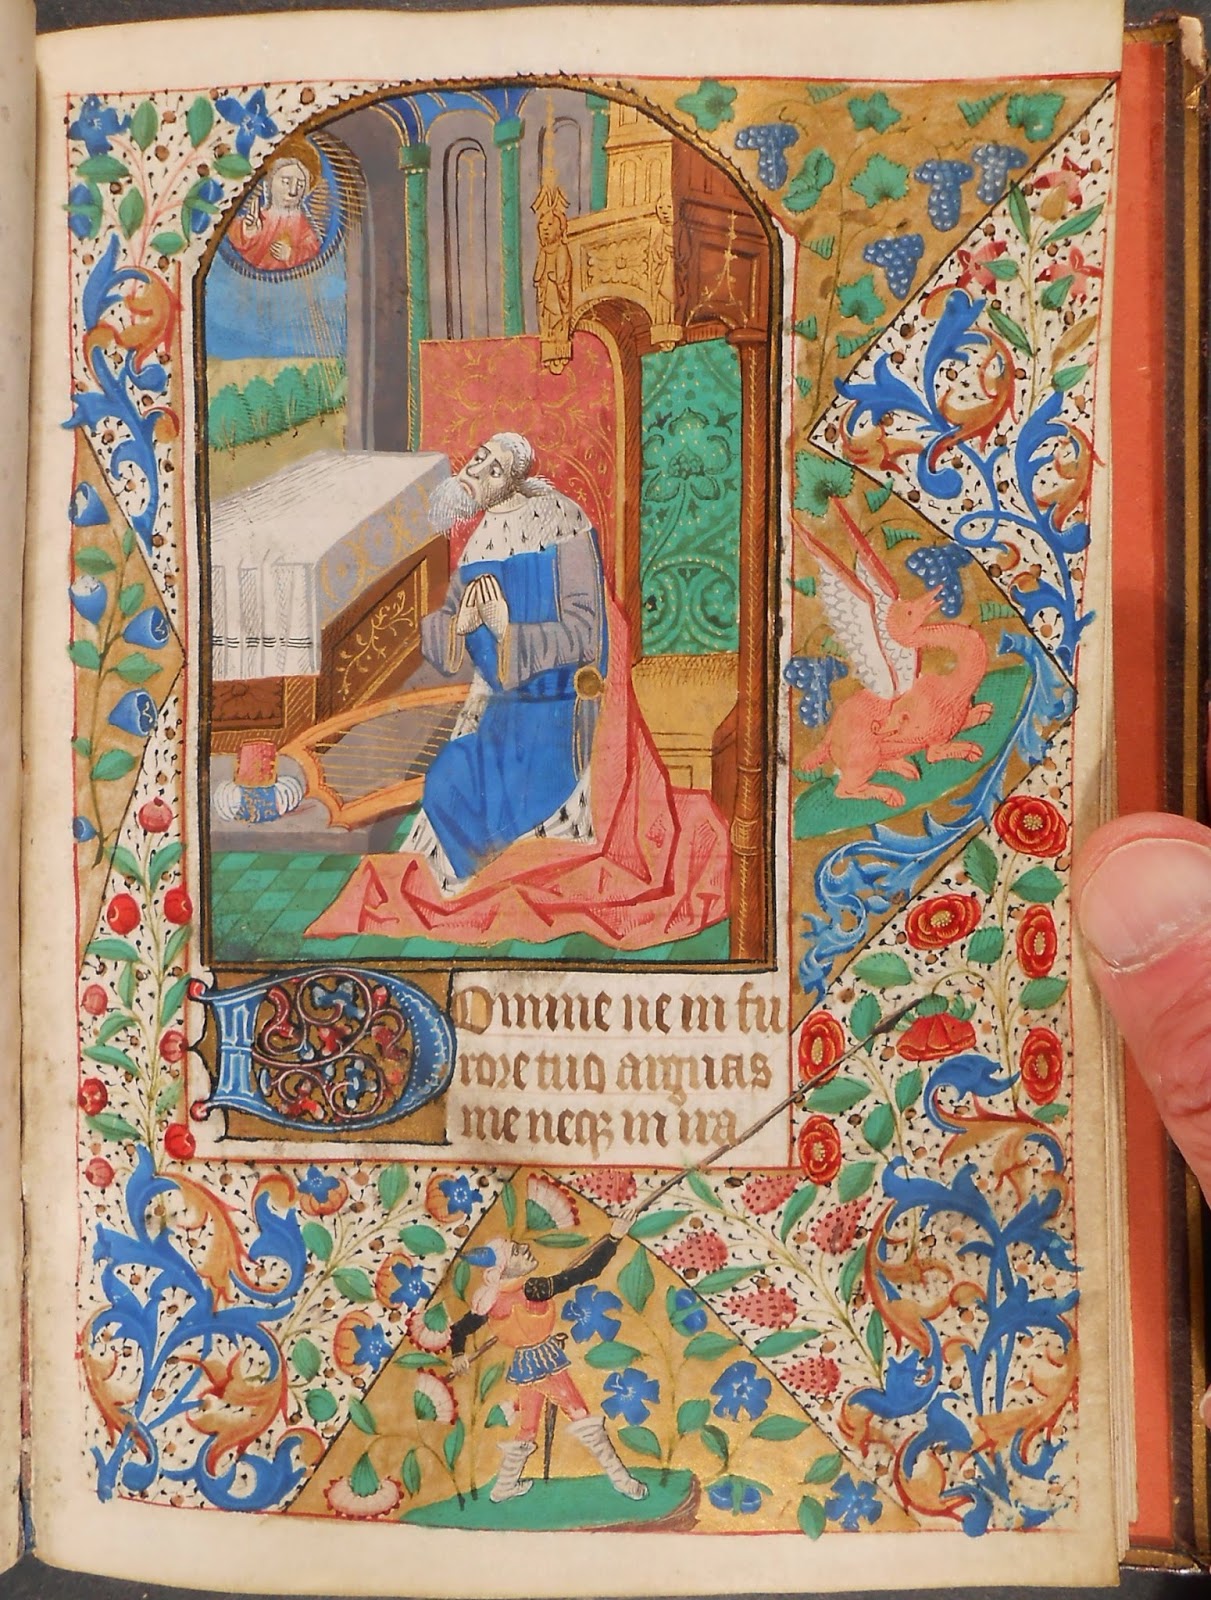 Domine ne in fu
rore tuo arguas
me neqz in ira